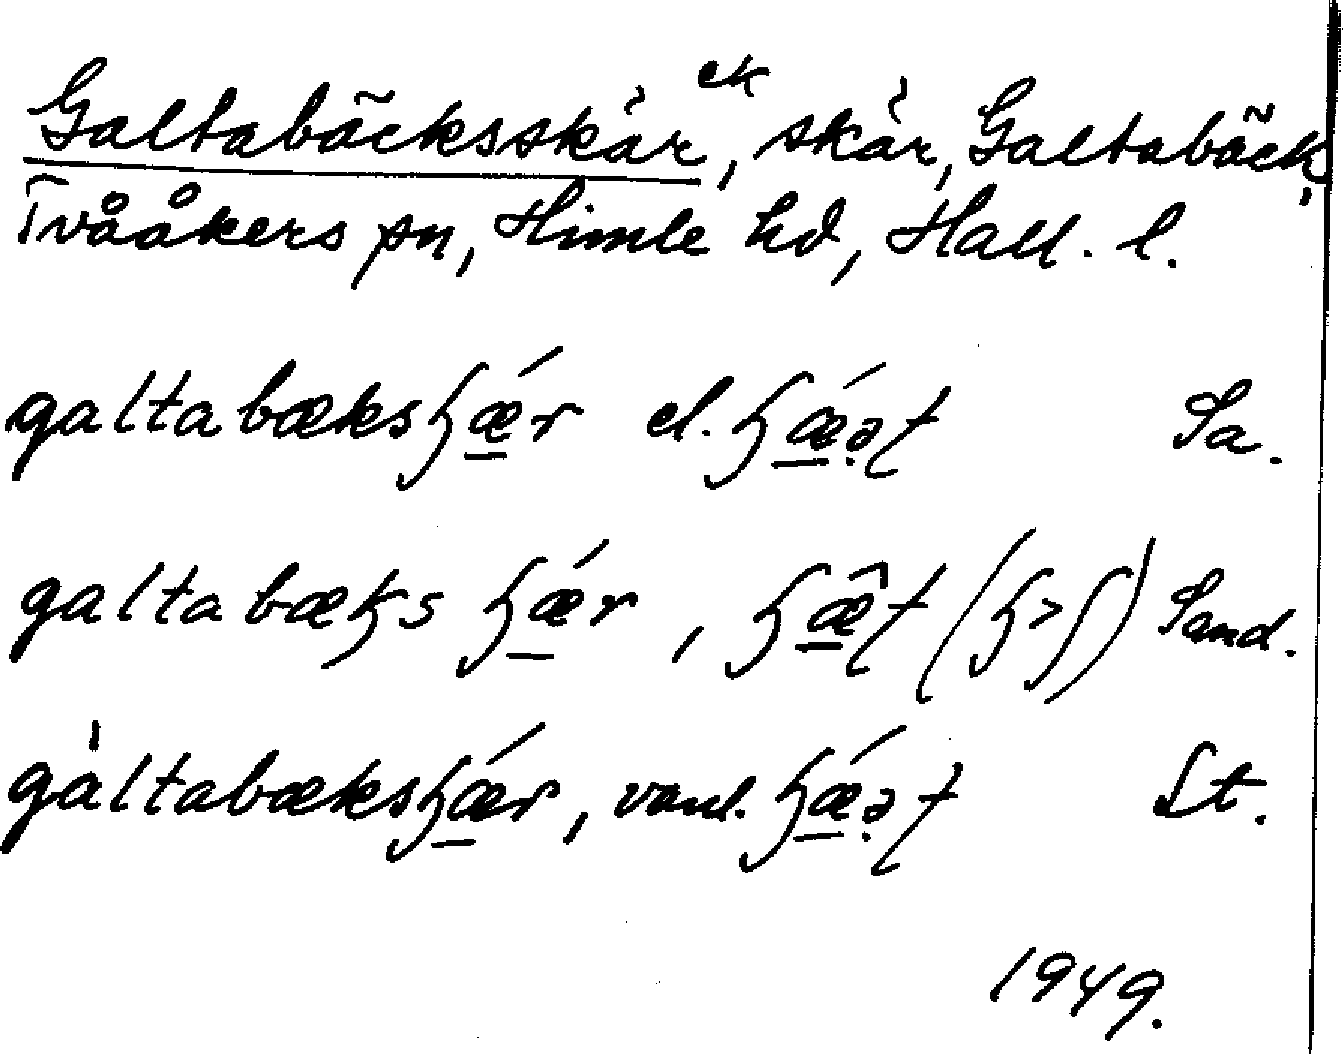 Galtabäcksskär, ek skär, Galtabäck,
Tvååkers sn, Himle hd, Hall. l.
galtabæksɧǽr el. ɧǽə̣ʈ Sa.
galtabæꞣs ɧǽr, ɧæ̂ʈ (ɧ>ʃ) Sand.
gàltabæksɧǽr, vanl. ɧǽə̣ʈ Lt.
1949.